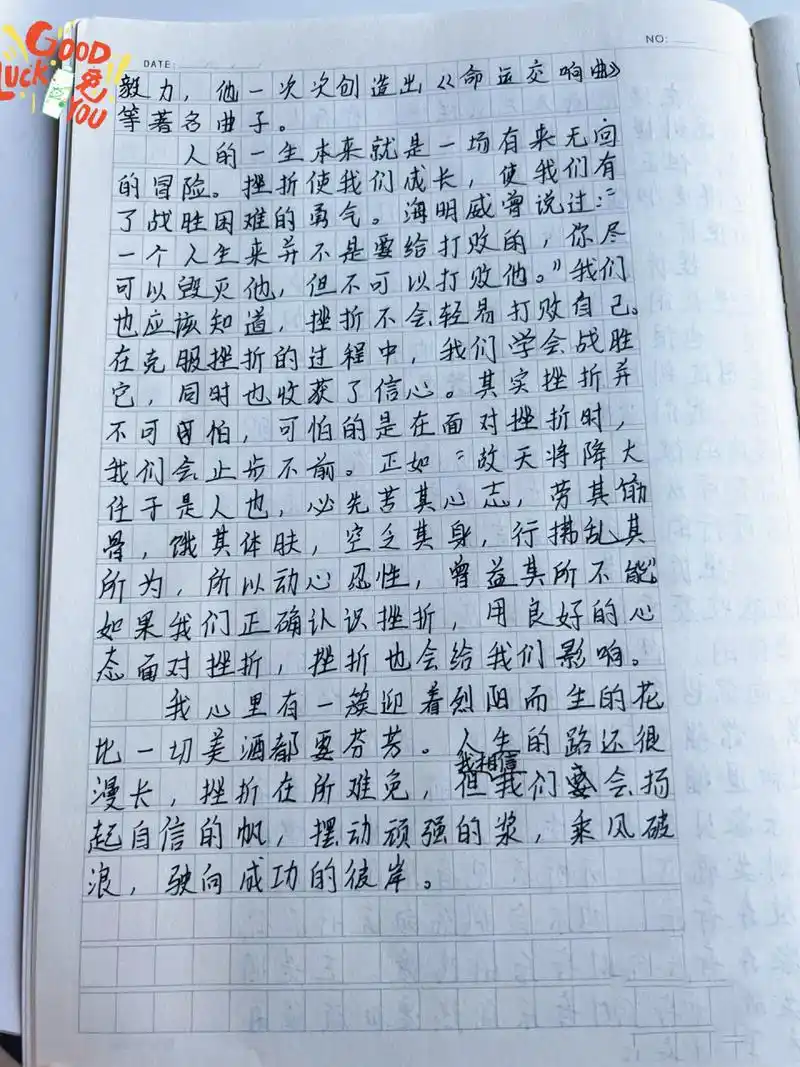 GOOD
LUCK
YOU
DATE:
NO:
毅力，他一次次创造出《命运交响曲》
等著名曲子。
人的一生本来就是一场有来无回
的冒险。挫折使我们成长，使我们有
了战胜困难的勇气。海明威曾说过：“
一个人生来并不是要给打败的，你尽
可以毁灭他，但不可以打败他。”我们
也应该知道，挫折不会轻易打败自己。
在克服挫折的过程中，我们学会战胜
它，同时也收获了信心。其实挫折并
不可怕，可怕的是在面对挫折时，
我们会止步不前。正如“故天将降大
任于是人也，必先苦其心志，劳其筋
骨，饿其体肤，空乏其身，行拂乱其
所为，所以动心忍性，曾益其所不能”
如果我们正确认识挫折，用良好的心
态面对挫折，挫折也会给我们影响。
我心里有一簇迎着烈阳而生的花
比一切美酒都要芬芳。人生的路还很
漫长，挫折在所难免，但我相信我们会扬
起自信的帆，摆动顽强的浆，乘风破
浪，驶向成功的彼岸。